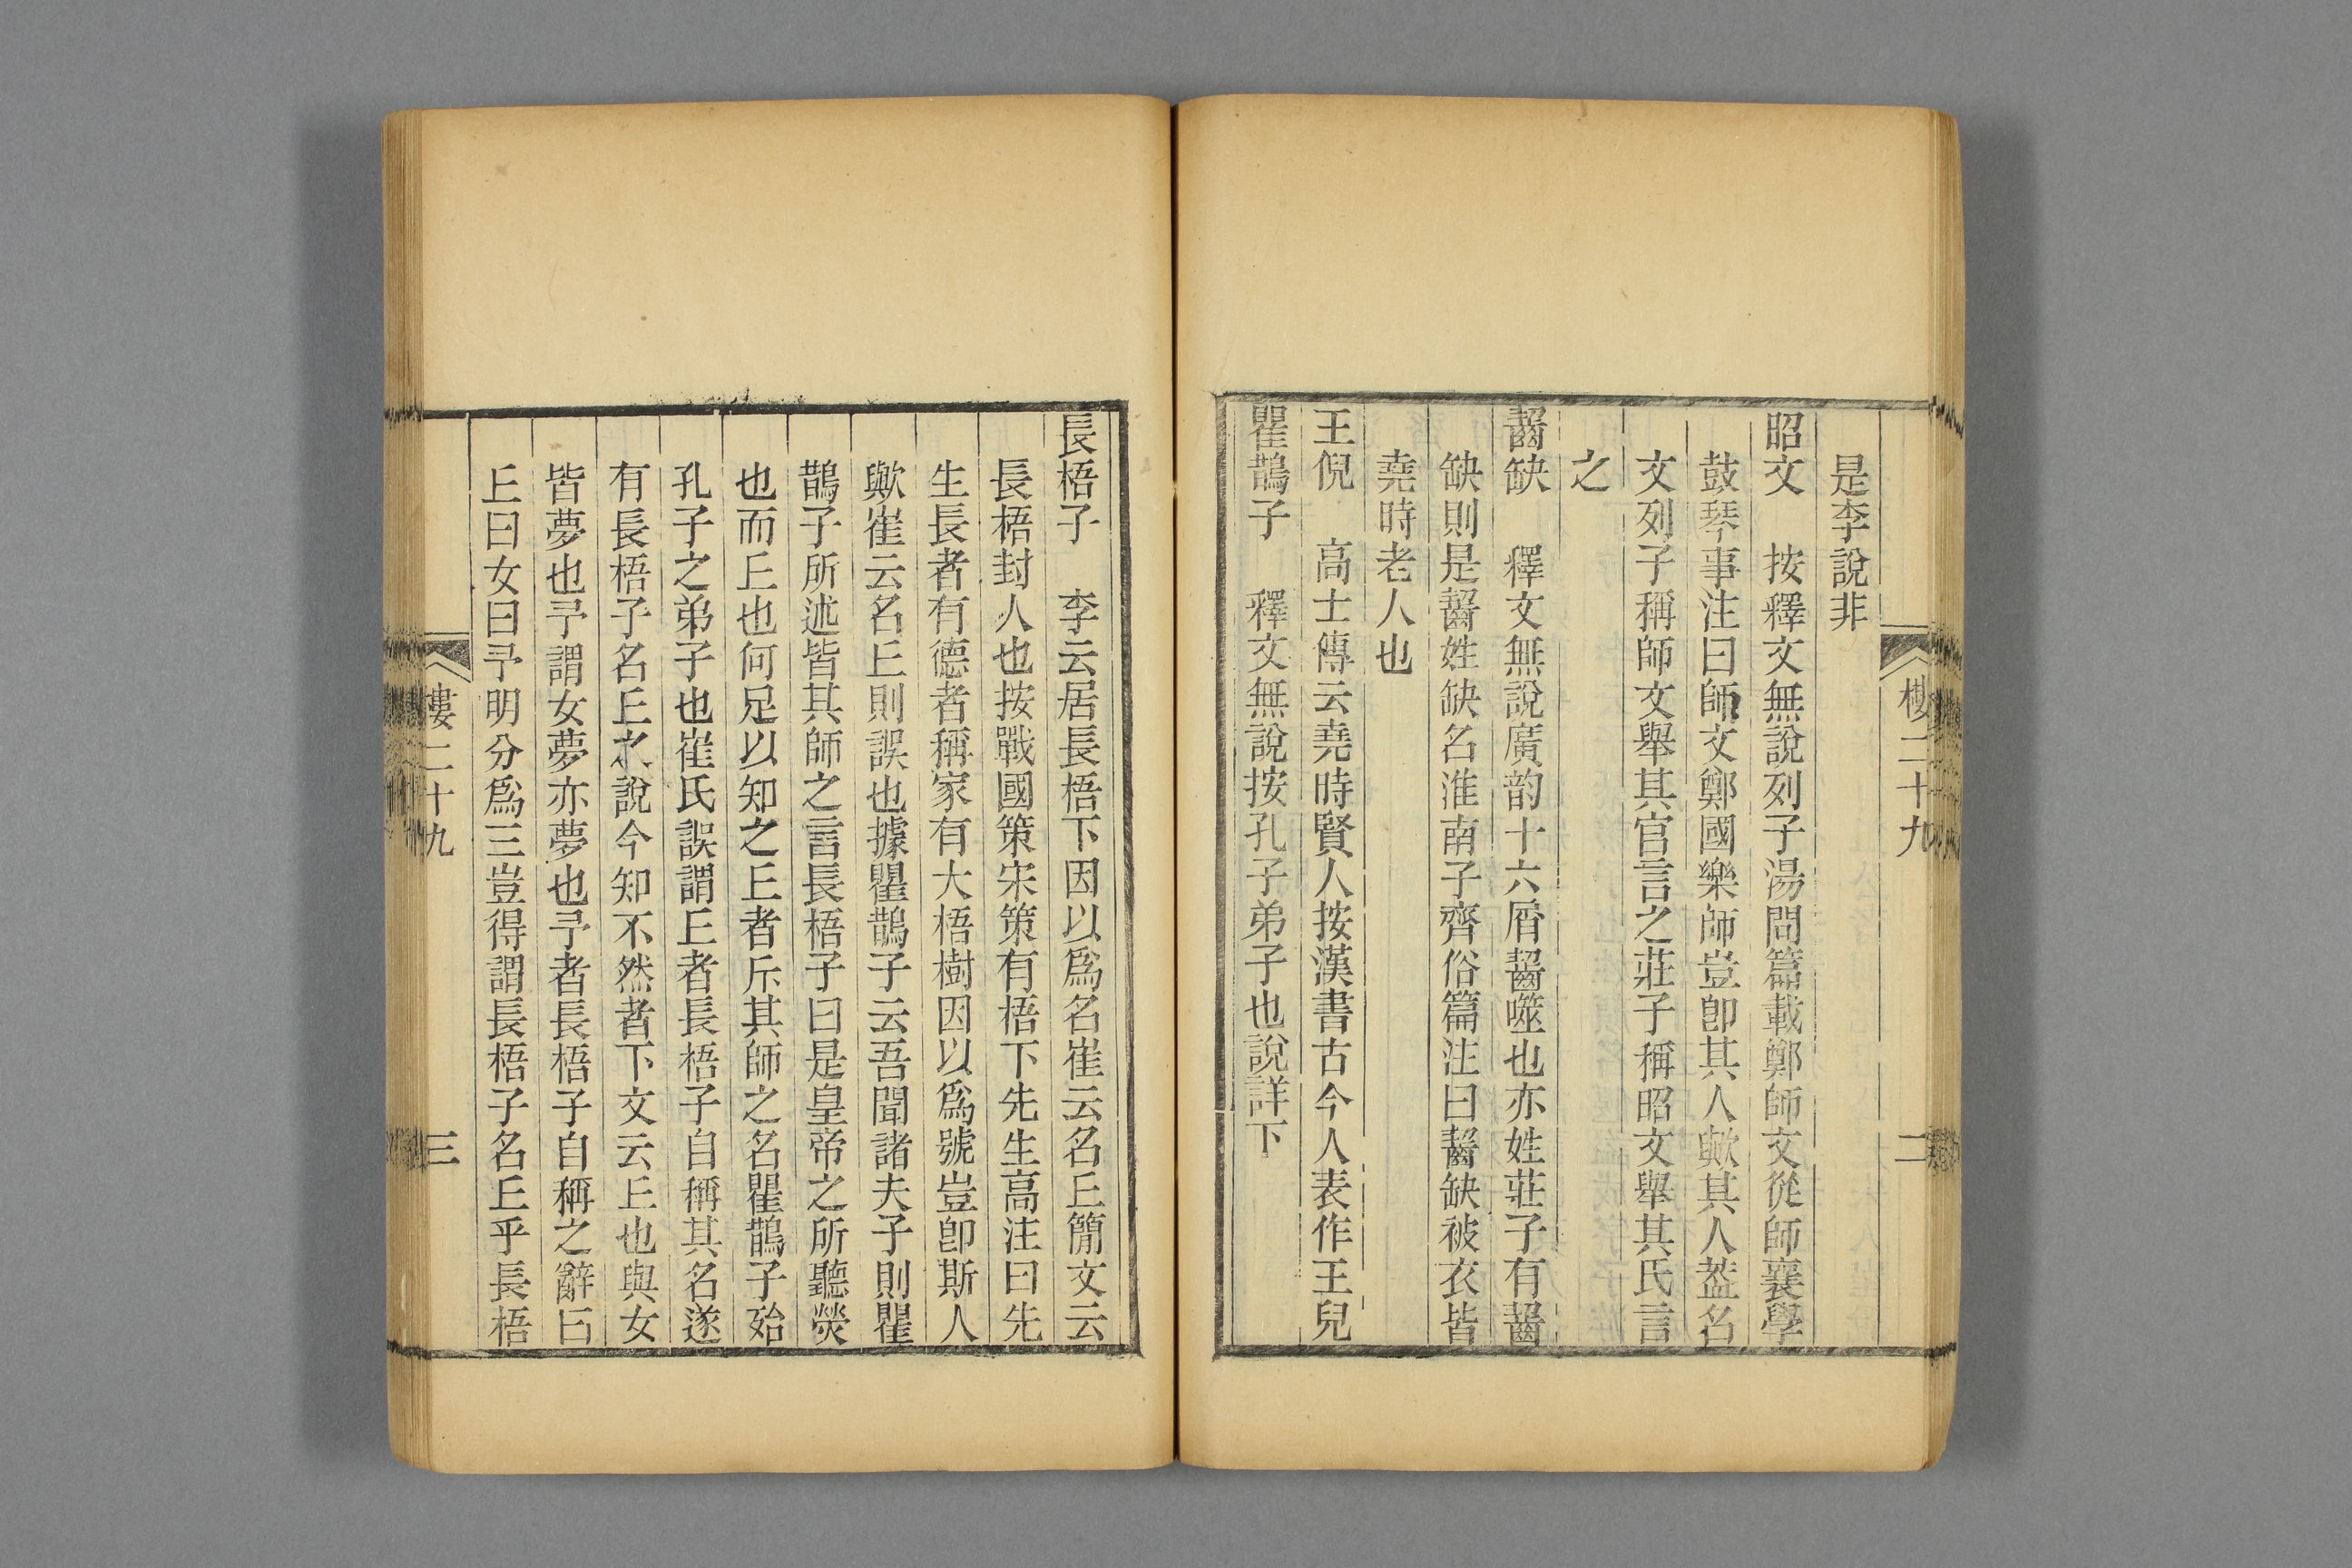 樓二十九
二
是李說非
昭文　按釋文無說列子湯問篇載鄭師文從師襄學
鼓琴事注曰師文鄭國樂師豈卽其人歟其人葢名
文列子稱師文舉其官言之莊子稱昭文舉其氏言
之
齧缺　釋文無說廣韵十六屑齧噬也亦姓莊子有齧
缺則是齧姓缺名淮南子齊俗篇注曰齧缺被衣皆
堯時老人也
王倪　高士傳云堯時賢人按漢書古今人表作王兒
瞿鵲子　釋文無說按孔子弟子也說詳下
長梧子　李云居長梧下因以爲名崔云名丠簡文云
長梧封人也按戰國策宋策有梧下先生高注曰先
生長者有德者稱家有大梧樹因以爲號豈卽斯人
歟崔云名丠則誤也據瞿鵲子云吾聞諸夫子則瞿
鵲子所述皆其師之言長梧子曰是皇帝之所聽熒
也而丠也何足以知之丠者斥其師之名瞿鵲子殆
孔子之弟子也崔氏誤謂丠者長梧子自稱其名遂
有長梧子名丠之說今知不然者下文云丠也與女
皆夢也予謂女夢亦夢也予者長梧子自稱之辭曰
丠曰女曰予明分爲三豈得謂長梧子名丠乎長梧
樓二十九
三